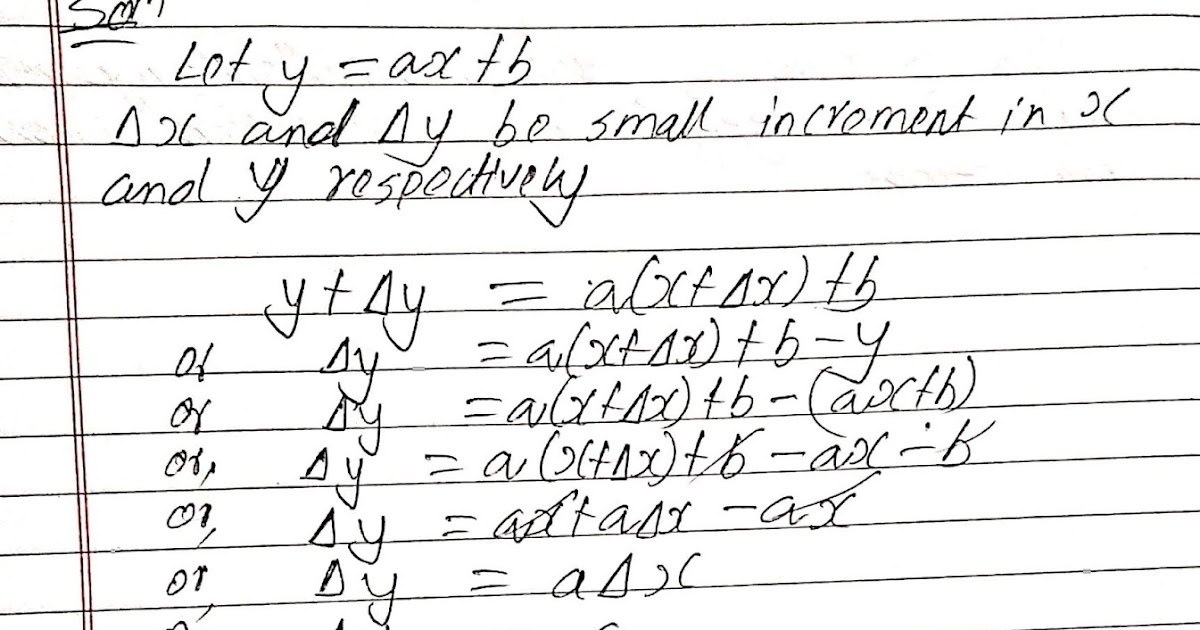 Soln
Let y = ax + b
Δx and Δy be small increment in x
and y respectively
y + Δy = a(x + Δx) + b
or Δy = a(x + Δx) + b - y
or Δy = a(x + Δx) + b - (ax + b)
or, Δy = a(x + Δx) + b - ax - b
or, Δy = ax + aΔx - ax
or Δy = aΔx